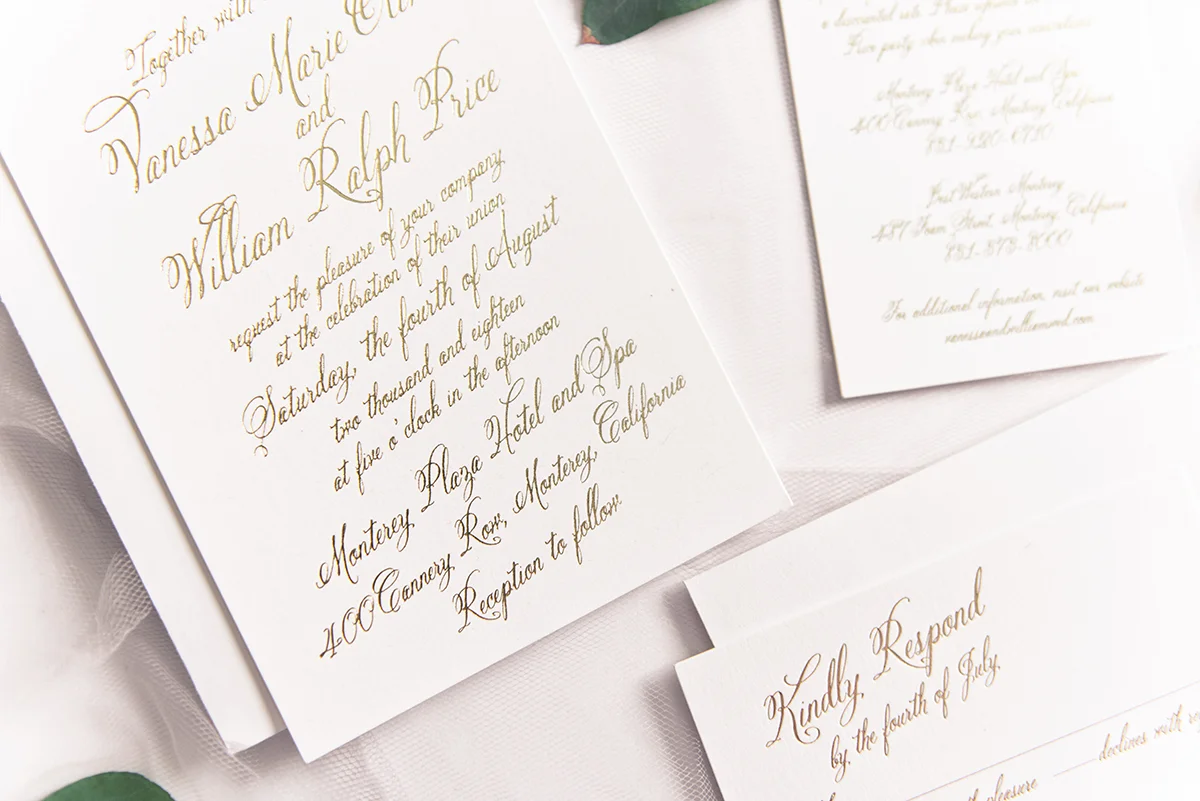 Together with
Vanessa Marie
and
William Ralph Price
request the pleasure of your company
at the celebration of their union
Saturday, the fourth of August
two thousand and eighteen
at five o'clock in the afternoon
Monterey Plaza Hotel and Spa
400 Cannery Row, Monterey, California
Reception to follow
a discounted rate. Please
party when making your reservations.
Monterey Plaza Hotel and Spa
400 Cannery Row, Monterey, California
Best Western Monterey
487 Foam Street, Monterey, California
For additional information, visit our website
Kindly Respond
by the fourth of July
declines with
pleasure